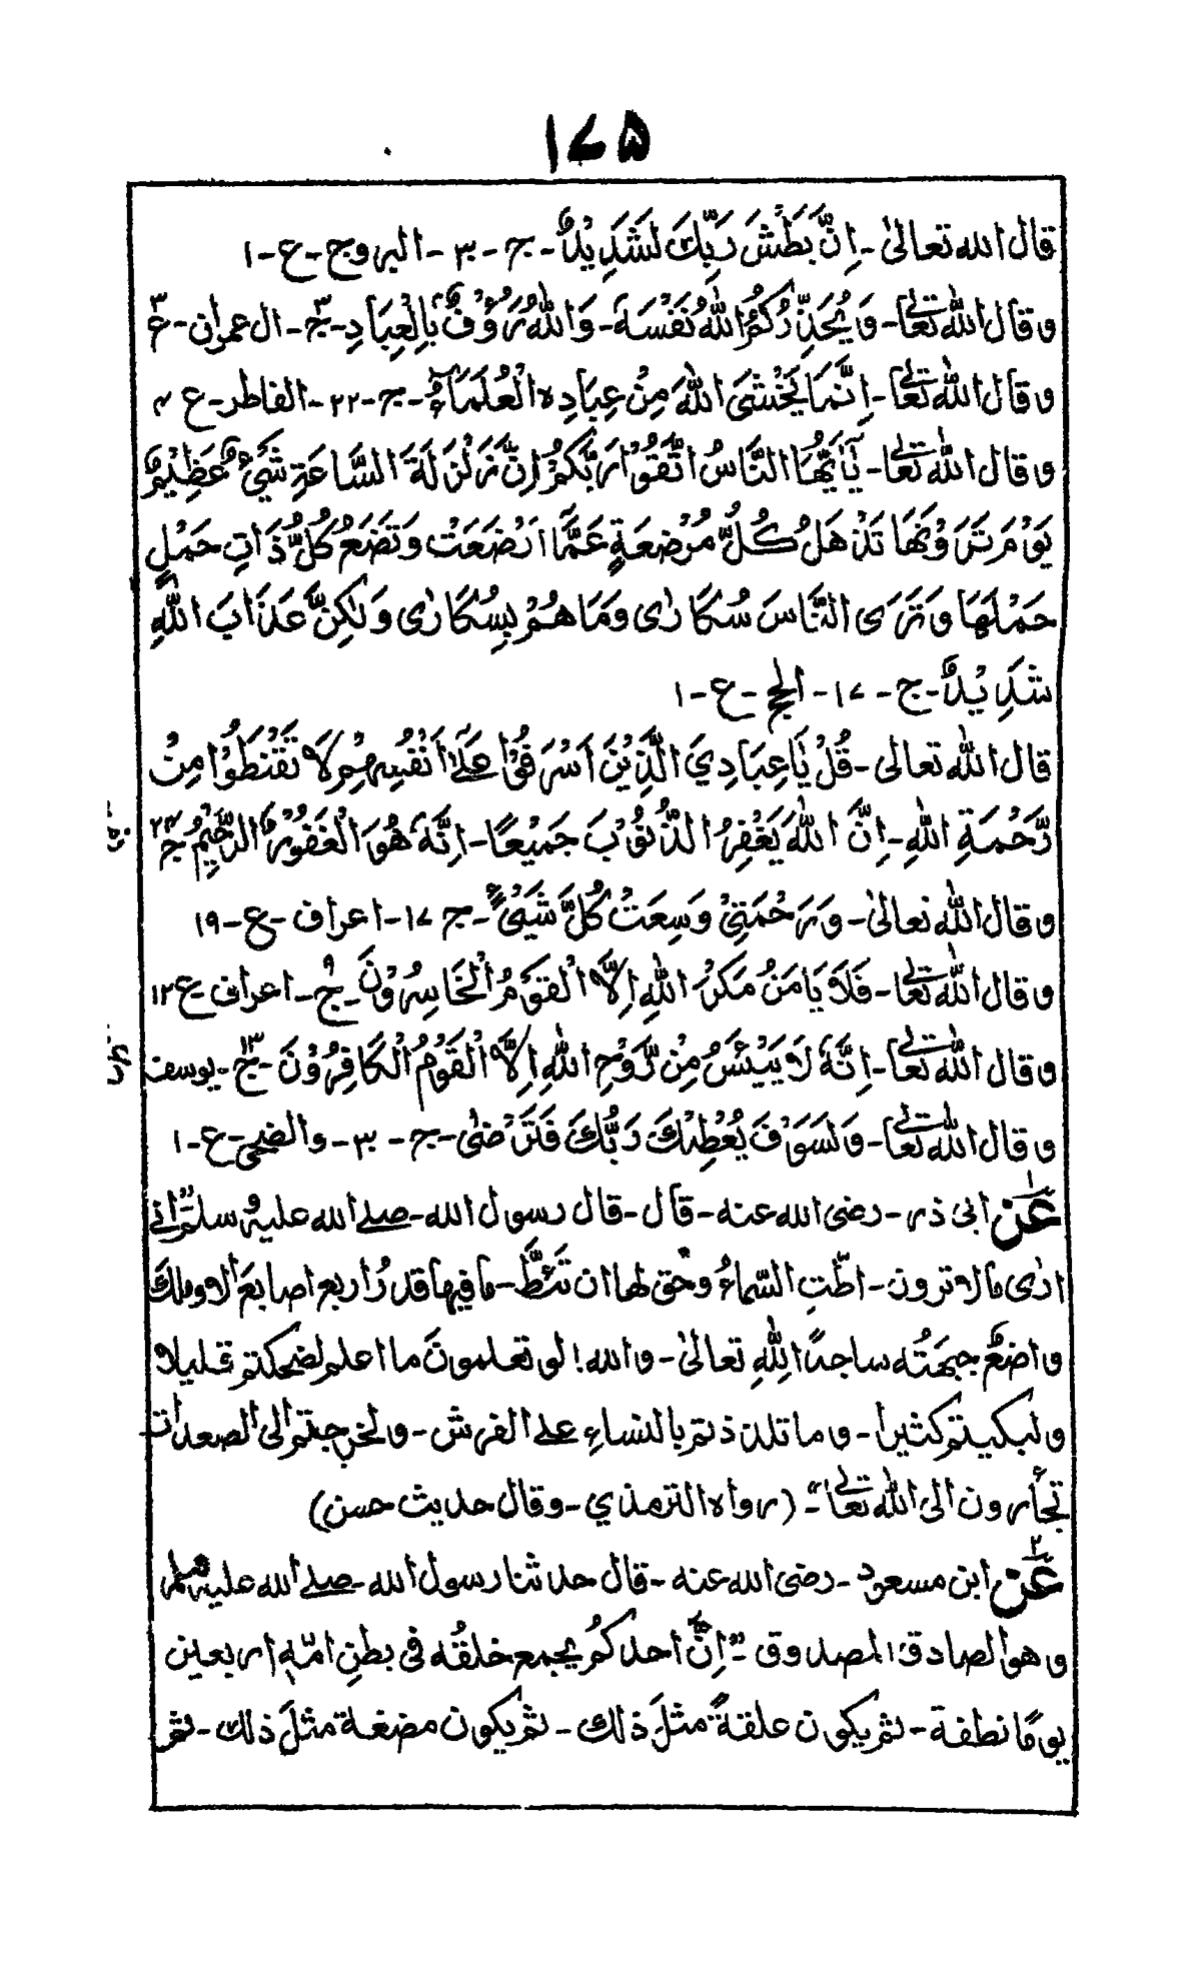 ۱۷۵
قال الله تعالیٰ - اِنَّ بَطْشَ رَبِّكَ لَشَدِيْدٌ - ج - ۳۰ - البروج - ع - ۱
و قال الله تعالےٰ - وَ يُحَذِّرُكُمُ اللّٰهُ نَفْسَهٗ - وَاللّٰهُ رَؤُوْفٌۢ بِالْعِبَادِ - ج۳ - ال عمران - ع۳
و قال الله تعالےٰ - اِنَّمَا يَخْشَى اللّٰهَ مِنْ عِبَادِهِ الْعُلَمَآءُ - ج - ۲۲ - الفاطر - ع ۴
و قال الله تعالےٰ - يٰٓاَيُّهَا النَّاسُ اتَّقُوْا رَبَّكُمْ اِنَّ زَلْزَلَةَ السَّاعَةِ شَيْءٌ عَظِيْمٌ
يَوْمَ تَرَوْنَهَا تَذْهَلُ كُلُّ مُرْضِعَةٍ عَمَّا اَرْضَعَتْ وَ تَضَعُ كُلُّ ذَاتِ حَمْلٍ
حَمْلَهَا وَ تَرَى النَّاسَ سُكَارٰى وَ مَا هُمْ بِسُكَارٰى وَ لٰكِنَّ عَذَابَ اللّٰهِ
شَدِيْدٌ - ج - ۱۷ - الحج - ع - ۱
قال الله تعالى - قُلْ يَا عِبَادِيَ الَّذِيْنَ اَسْرَفُوْا عَلٰٓى اَنْفُسِهِمْ لَا تَقْنَطُوْا مِنْ
رَّحْمَةِ اللّٰهِ - اِنَّ اللّٰهَ يَغْفِرُ الذُّنُوْبَ جَمِيْعًا - اِنَّهٗ هُوَ الْغَفُوْرُ الرَّحِيْمُ ج ۲۴
و قال الله تعالیٰ - وَ رَحْمَتِىْ وَسِعَتْ كُلَّ شَيْئٍ - ج ۱۷ - اعراف - ع - ۱۹
و قال الله تعالےٰ - فَلَا يَا مَنُ مَكْرَ اللّٰهِ اِلَّا الْقَوْمُ الْخَاسِرُوْنَ - ج۹ - اعراف ع ۱۲
و قال الله تعالےٰ - اِنَّهٗ لَا يَيْئَسُ مِنْ رَّوْحِ اللّٰهِ اِلَّا الْقَوْمُ الْكَافِرُوْنَ - ج۱۳ - يوسف
و قال الله تعالےٰ - وَ لَسَوْفَ يُعْطِيْكَ رَبُّكَ فَتَرْضٰى - ج - ۳۰ - والضحى - ع - ۱
۱ عَن ابى ذر - رضى الله عنه - قال - قال رسول الله - صلے الله عليه و سلم "انّے
ارٰى ما لا ترون - اطّتِ السّماءُ و حق لها ان تَئِطَّ - ما فيها قدرُ اربع اصابعَ الا و ملك
و اضعٌ جبهَتُه ساجدًا لِلّٰهِ تعالیٰ - و الله! لو تعلمونَ ما اعلم لضحكتم قليلا
و لبكيتم كثيرا - و ما تلذذتم بالنساءِ علے الفرش - و لخرجتم الى الصعدات
تجأرون الى الله تعالےٰ" - (رواه الترمذي - وقال حديث حسن)
۲ عَن ابن مسعود - رضى الله عنه - قال حدثنا رسول الله - صلے الله عليه وسلم
و هو الصادق المصدوق - "اِنَّ احدكمُ يجمع خلقُه فى بطنِ امّهٖ اربعين
يومًا نطفة - ثم يكون علقةً مثلَ ذلك - ثم يكون مضغة مثلَ ذلك - ثم